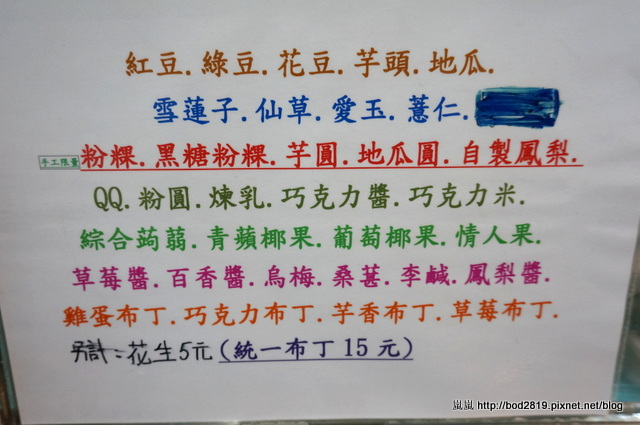 紅豆.綠豆.花豆.芋頭.地瓜.
雪蓮子.仙草.愛玉.薏仁.
手工限量 粉粿.黑糖粉粿.芋圓.地瓜圓.自製鳳梨.
QQ.粉圓.煉乳.巧克力醬.巧克力米.
綜合蒟蒻.青蘋椰果.葡萄椰果.情人果.
草莓醬.百香醬.烏梅.桑葚.李鹹.鳳梨醬.
雞蛋布丁.巧克力布丁.芋香布丁.草莓布丁.
另計:花生5元(統一布丁15元)
嵐嵐 http://bod2819.pixnet.net/blog